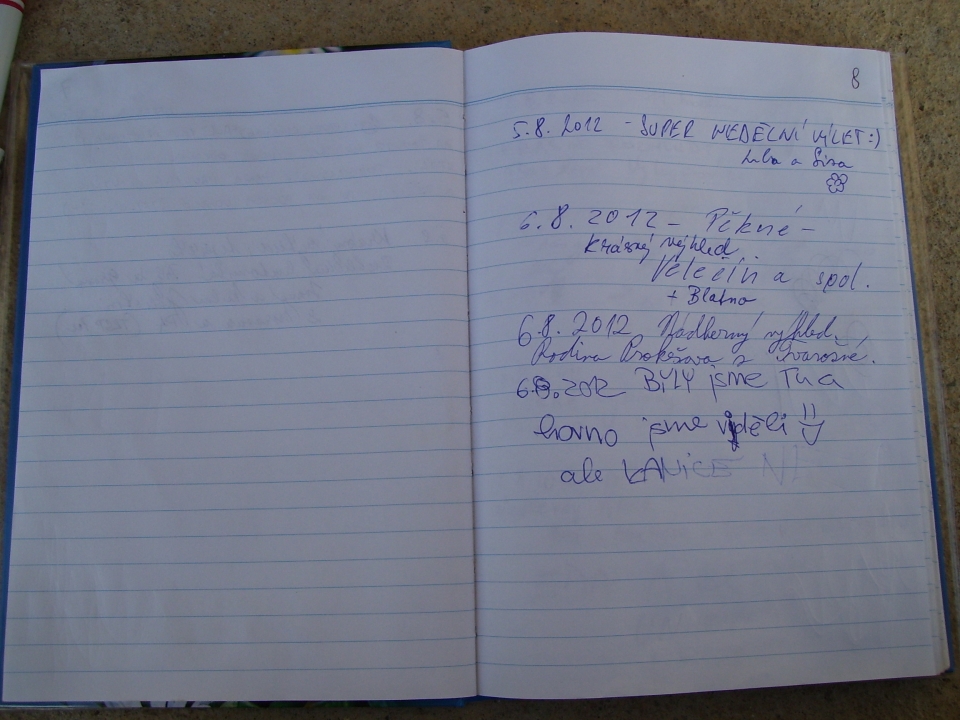 8
5.8.2012 - SUPER NEDĚLNÍ VÝLET:)
a
6.8.2012 - Pěkné -
Krásný výhled
a spol.
+ Blatno
6.8.2012 Nádherný výhled.
Rodina Prokešova z
6.8.2012 BYLY jsme TU a
hovno jsme viděli
ale